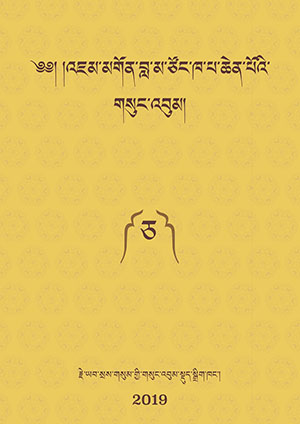 ༄༅། །འཇམ་མགོན་བླ་མ་ཙོང་ཁ་པ་ཆེན་པོའི་
གསུང་འབུམ།
ཅ
རྗེ་ཡབ་སྲས་གསུམ་གྱི་གསུང་འབུམ་སྡུད་སྒྲིག་ཁང་།
2019